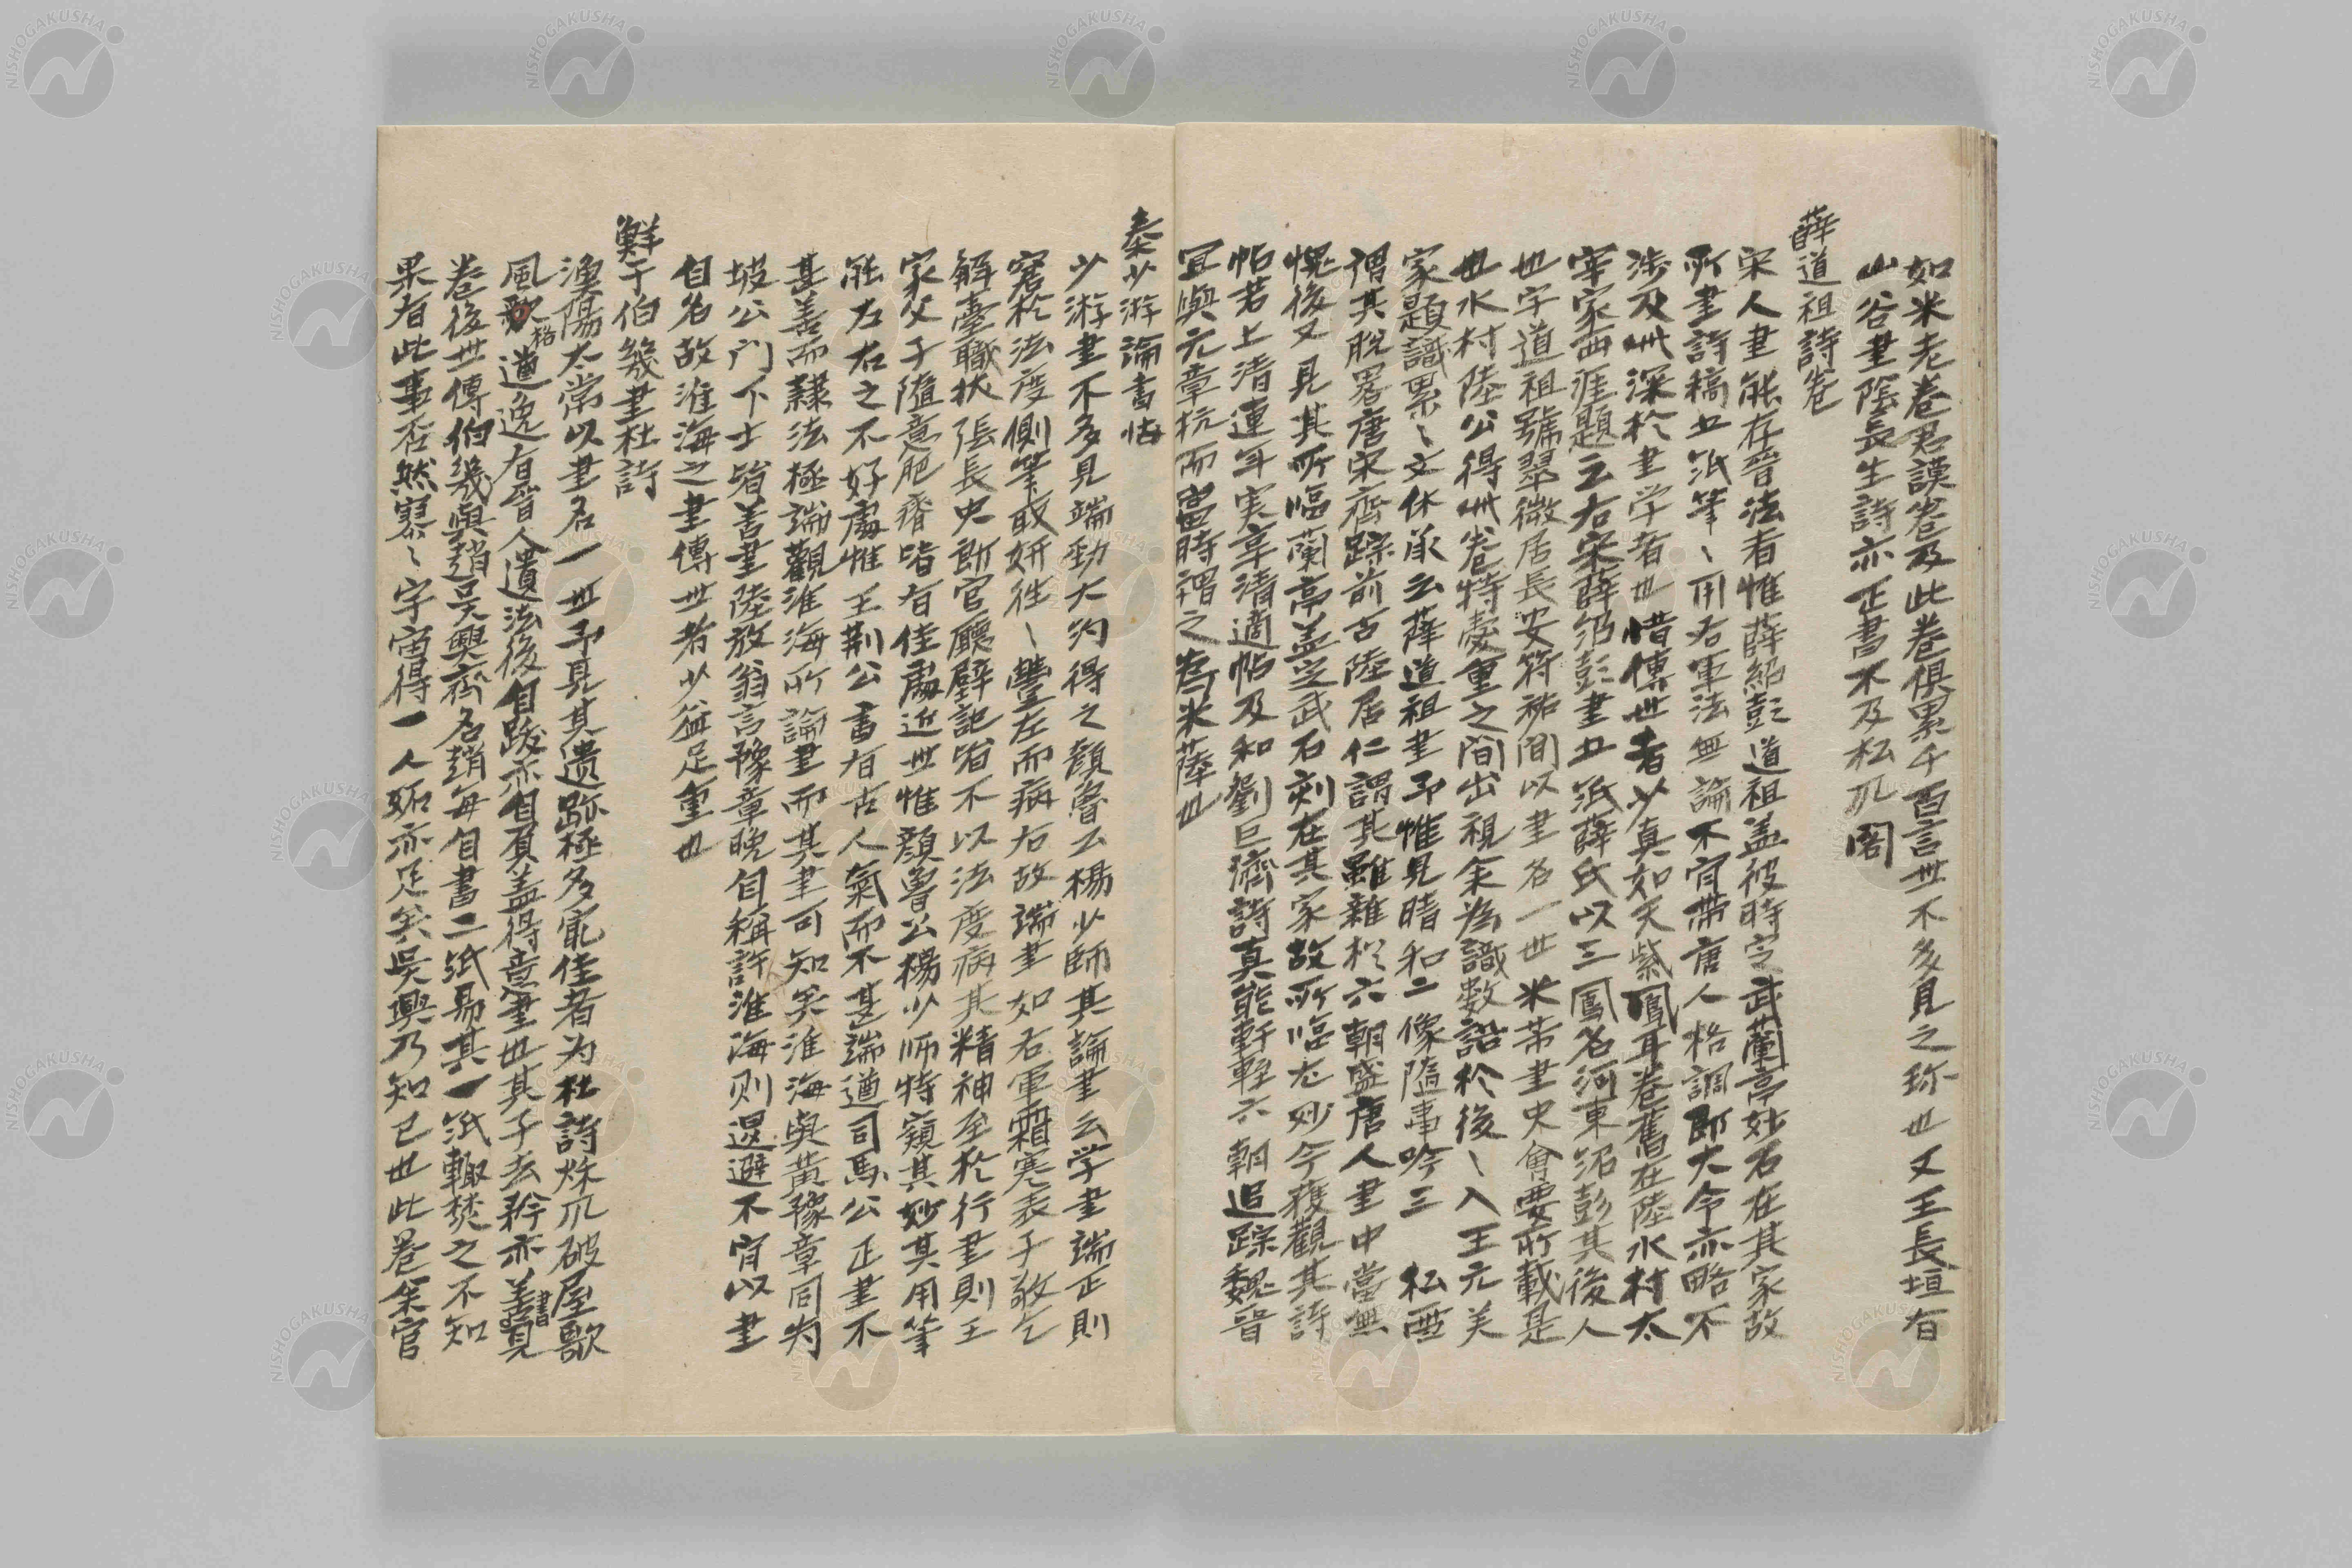 如米老卷君謨卷及此卷俱累千百言世不多見之珎也又王長垣有
山谷書陰長生詩亦正書不及松爪閣
薛道祖詩卷
宋人書能存晉法者惟薛紹彭道祖盖彼時定武蘭亭妙石在其家故
所書詩稿五紙筆〻用右軍法無論不肯帶唐人格調即大令亦略不
涉及此深於書学者也惜傳世者少真如天紫鳳耳卷舊在陸水村太
宰家西涯題云右宋薛紹彭書五紙薛氏以三鳳名河東紹彭其後人
也字道祖號翠微居長安符祐間以書名一世米芾書史會要所載是
也水村陸公得此卷特愛重之間出視余為識數語於後〻入王元美
家題識累〻文休承云薛道祖書予惟見晴和二像隨事吟三 松酉
謂其脫畧唐宋齊踪前古陸居仁謂其雖雜於六朝盛唐人書中當無
愧後又見其所臨蘭亭盖定武石刻在其家故所臨尤妙今獲觀其詩
帖若上清連年実享清適帖及和劉巨濟詩真能軒輊六朝追踪魏晉
宜與元章抗而當時稱之為米薛也
秦少游論書帖
少游書不多見端勁大約得之顏魯公楊少師其論書云学書端正則
窘於法度側筆取妍徃〻豐左而病右故端書如右軍霜寒表子敬乞
解臺職狀張長史郎官廳壁記皆不以法度病其精神至於行書則王
家父子隨意肥瘠皆有佳處近世惟顏魯公楊少师特窺其妙其用筆
能左右之不好處惟王荆公書有古人氣而不甚端遒司馬公正書不
甚善而隸法極端觀淮海所論書而其書可知矣淮海與黃豫章同为
坡公门下士皆善書陸放翁言豫章晚自稱許淮海则退避不肯以書
自名故淮海之書傳世者少益足重也
鮮于伯幾書杜詩
漁陽太常以書名一世予見其遺跡極多㝡佳者为杜詩烁爪破屋歌
風歌格遒逸有晉人遺法後自跋亦自負盖得意筆也其子去矜亦善書見
卷後世傳伯幾與趙吴興齊名趙每自書二紙易其一紙輙焚之不知
果有此事否然寥〻宇宙得一人妬亦足矣吳興乃知已也此卷余官